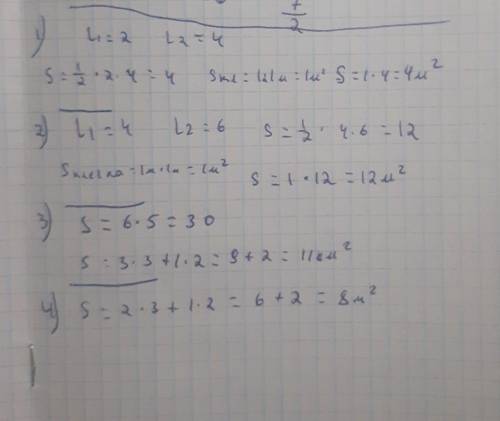 7/2
1) L₁ = 2 L₂ = 4
S = 1/2 · 2 · 4 = 4 Sкл = 1м·1м = 1м² S = 1 · 4 = 4м²
2) L₁ = 4 L₂ = 6 S = 1/2 · 4 · 6 = 12
= 1м · 1м = 1м² S = 1 · 12 = 12м²
3) S = 6 · 5 = 30
S = 3 · 3 + 1 · 2 = 9 + 2 = 11м²
4) S = 2 · 3 + 1 · 2 = 6 + 2 = 8м²